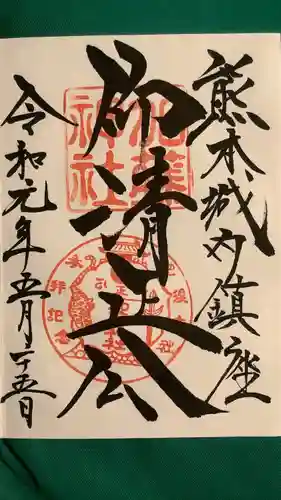 熊本城内鎮座
仰清正公
令和元年五月二十五日
加藤
神社